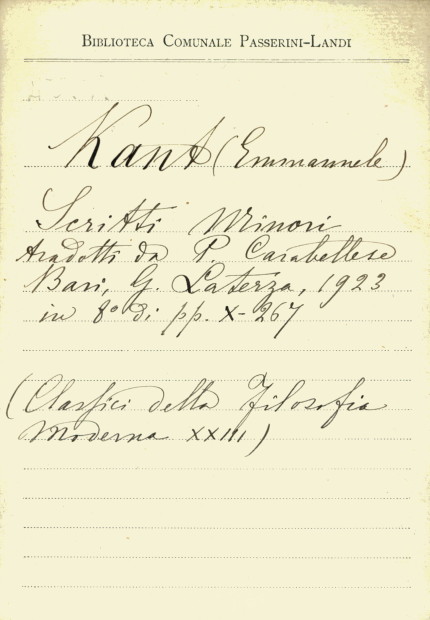 BIBLIOTECA COMUNALE PASSERINI-LANDI
Kant (Emmanuele)
Scritti Minori
tradotti da P. Carabellese
Bari, G. Laterza, 1923
in 8° di pp. X-267
(Classici della Filosofia
Moderna XXIII)